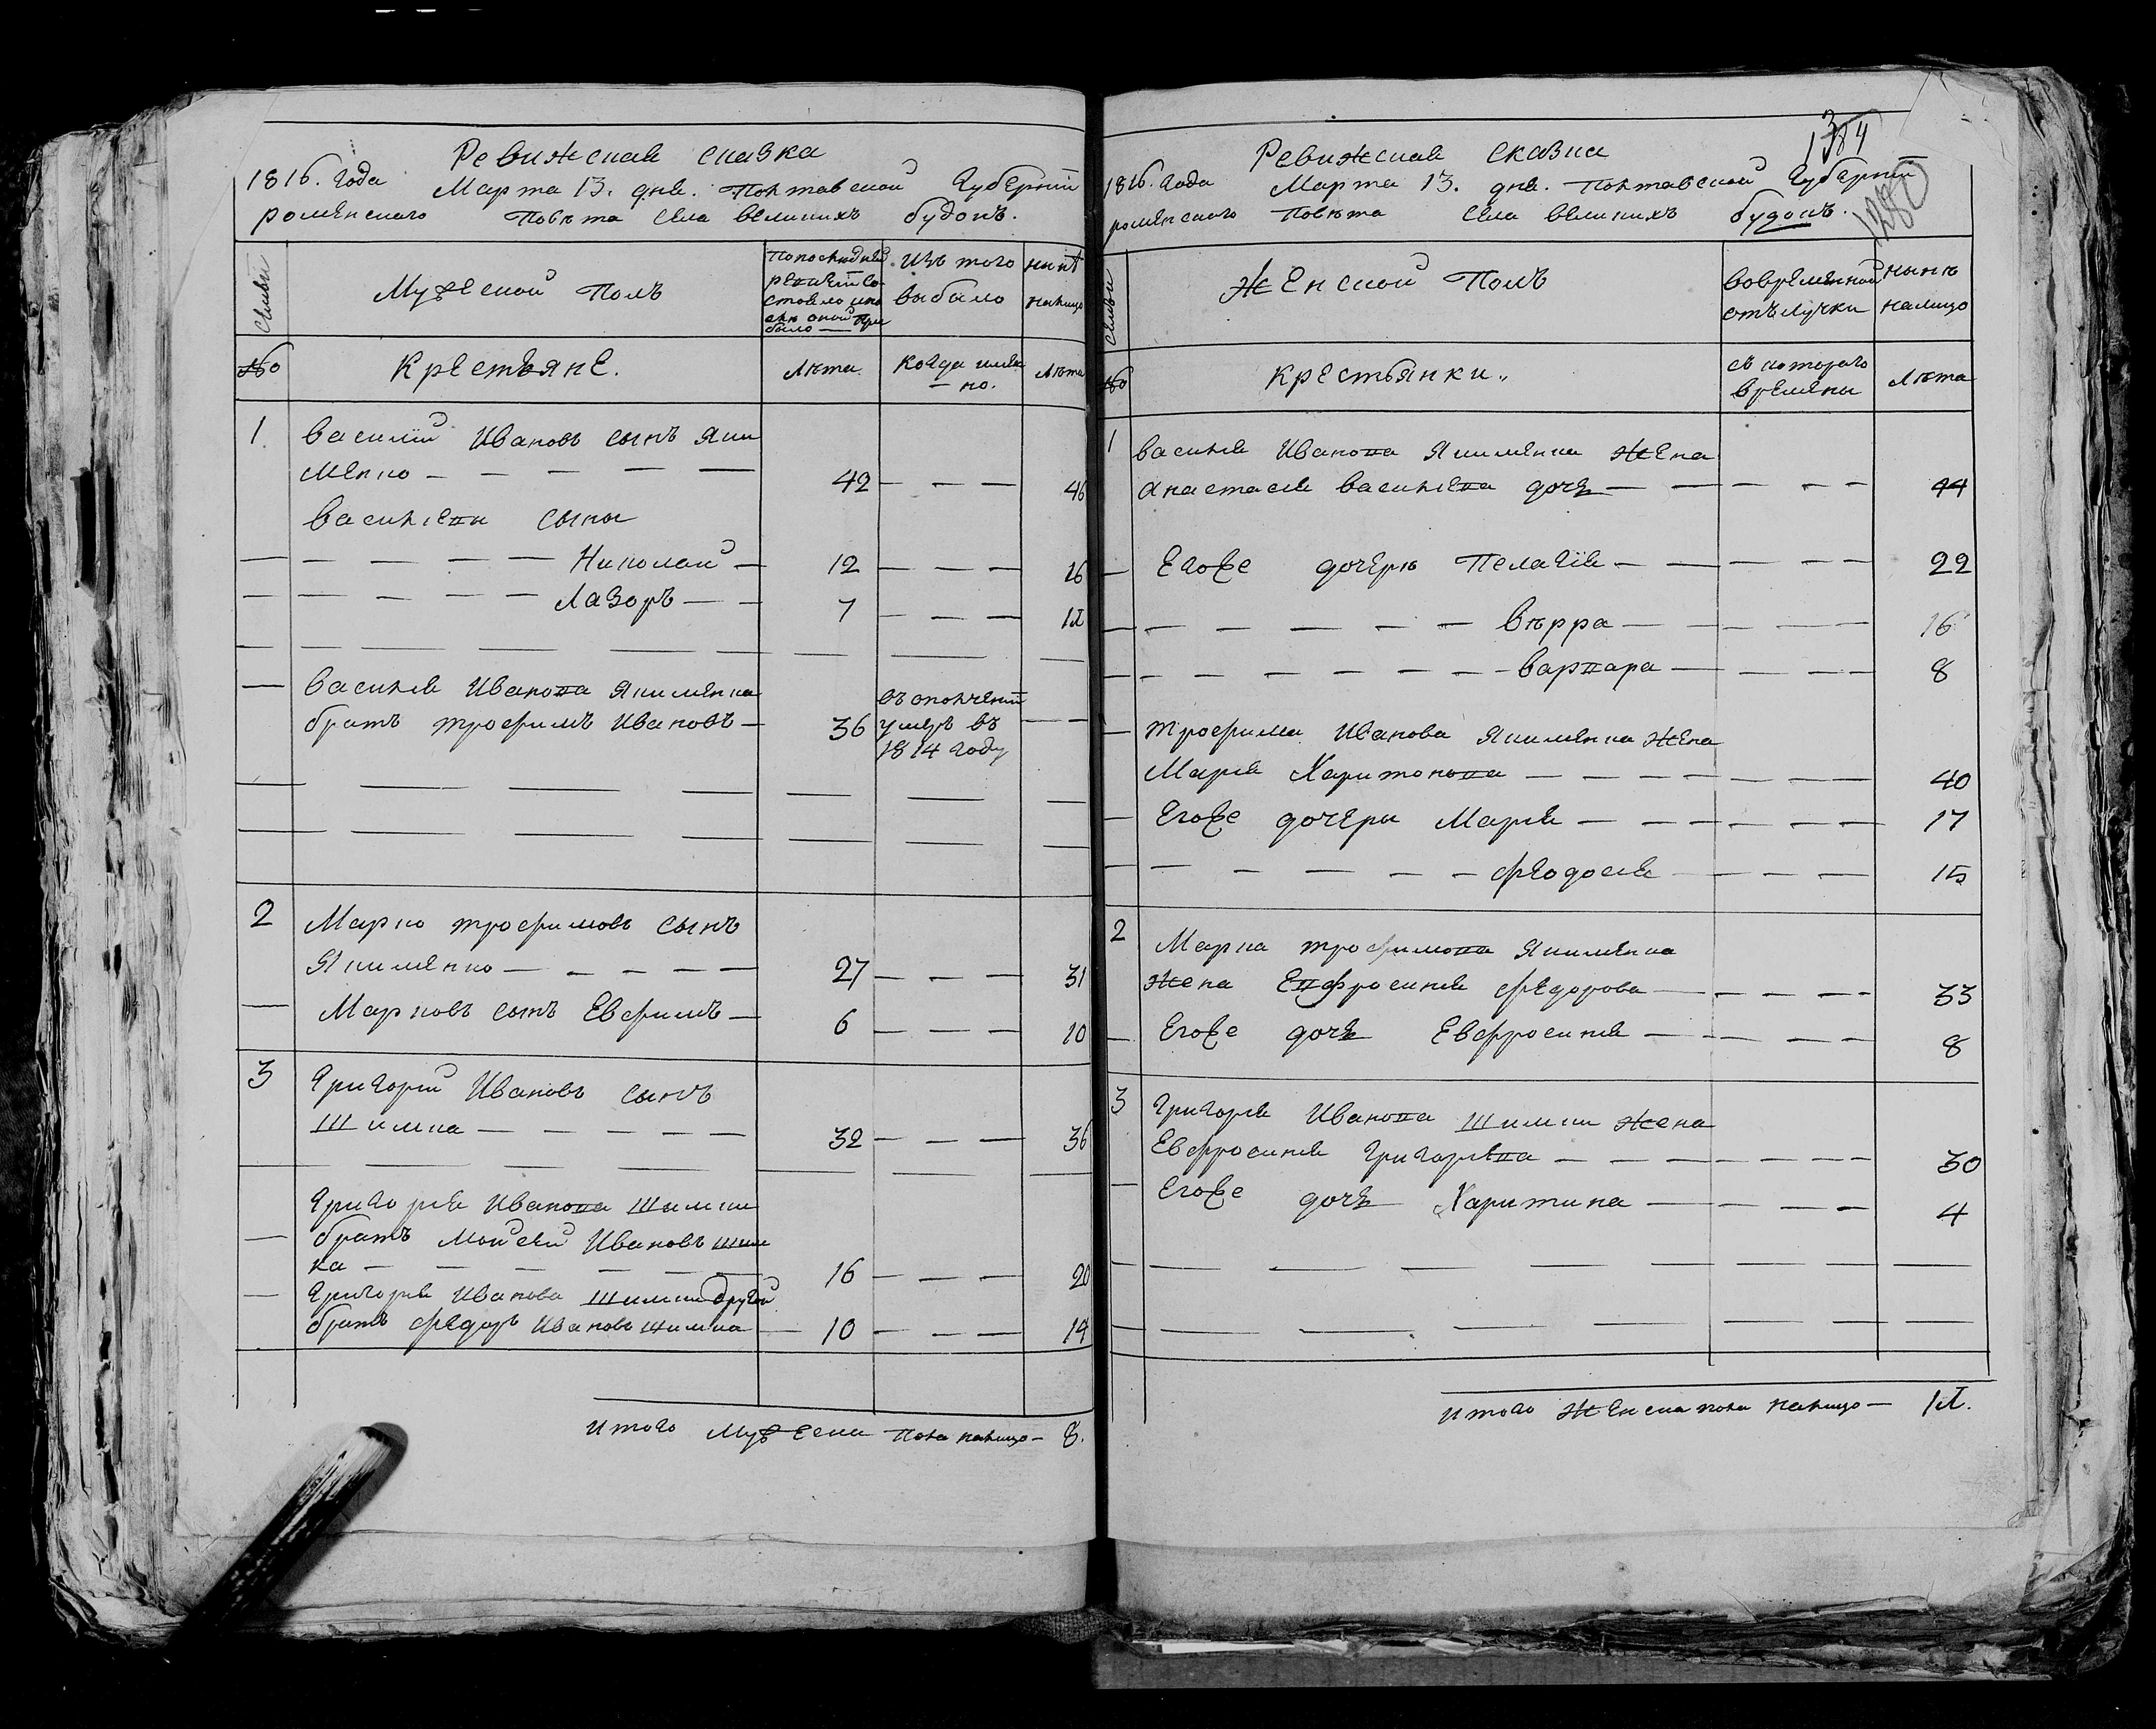 Ревижская сказка
1816. года Марта 13. дня. Полтавской Губернїи
роменского Повѣта Села великихъ будокъ.
Семьи
Мужеской Полъ
По последней ревизїи состояло и после оной прибыло
Изъ того выбыло
нынѣ налицо
№
Крестьяне.
Лѣта
Когда именно.
Лѣта
1. василїй Ивановъ сынъ Яки
менко — — — — — 42 — — — 46
васильевы сыны
— — — — — Николай — 12 — — — 16
— — — — — Лазоръ — — 7 — — — 11
— василья Иванова Якименка
братъ трофимъ Ивановъ — 36 въ ополченїи умеръ въ 1814 году — —
2 Марко трофимовъ сынъ
Якименко — — — — — 27 — — — 31
— Марковъ сынъ Евфимъ — 6 — — — 10
3 Григорїй Ивановъ сынъ
Шимка — — — — — 32 — — — 36
Григорья Иванова Шимки
— братъ Мойсей Ивановъ Шим
ка — — — — — — 16 — — — 20
— Григорья Иванова Шимки другой
братъ федоръ Ивановъ шимка — 10 — — — 14
итого мужеска пола налицо — 8.
1384
Ревижская сказка
1816. года Марта 13. дня. Полтавской Губернїи
роменского Повѣта Села великихъ будокъ.
Семьи
Женской Полъ
вовременной отълучки
нынѣ налицо
№
крестьянки.
съ котораго времены
Лѣта
1 василья Иванова Якименка жена
Анастасья васильева дочь — — — — — 44
— Егоже дочеръ Пелагїя — — — — — 22
— — — — — — — вѣрра — — — — 16
— — — — — — — — варвара — — — — 8
— трофима Иванова Якименка жена
Марья Харитонова — — — — — — — 40
— Егоже дочеры Марья — — — — — — — 17
— — — — — — феодосья — — — — 15
2 Марка трофимова Якименка
жена Евфросинья федорова — — — — — 33
— Егоже дочь Евфросинья — — — — — 8
3 Григорья Иванова Шимки жена
Евфросинья Григорьева — — — — — — — 30
— Егоже дочь Харитина — — — — 4
итого женска пола налицо — 11.